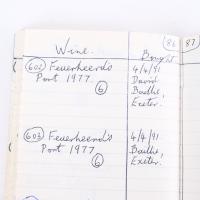 86 87
Wine. Bought
602 Feuerheerds 4/4/91
Port 1977 David
6 Baillie,
Exeter.
603 Feuerheerd's 4/4/91.
Port 1977 Baillie,
6 Exeter.